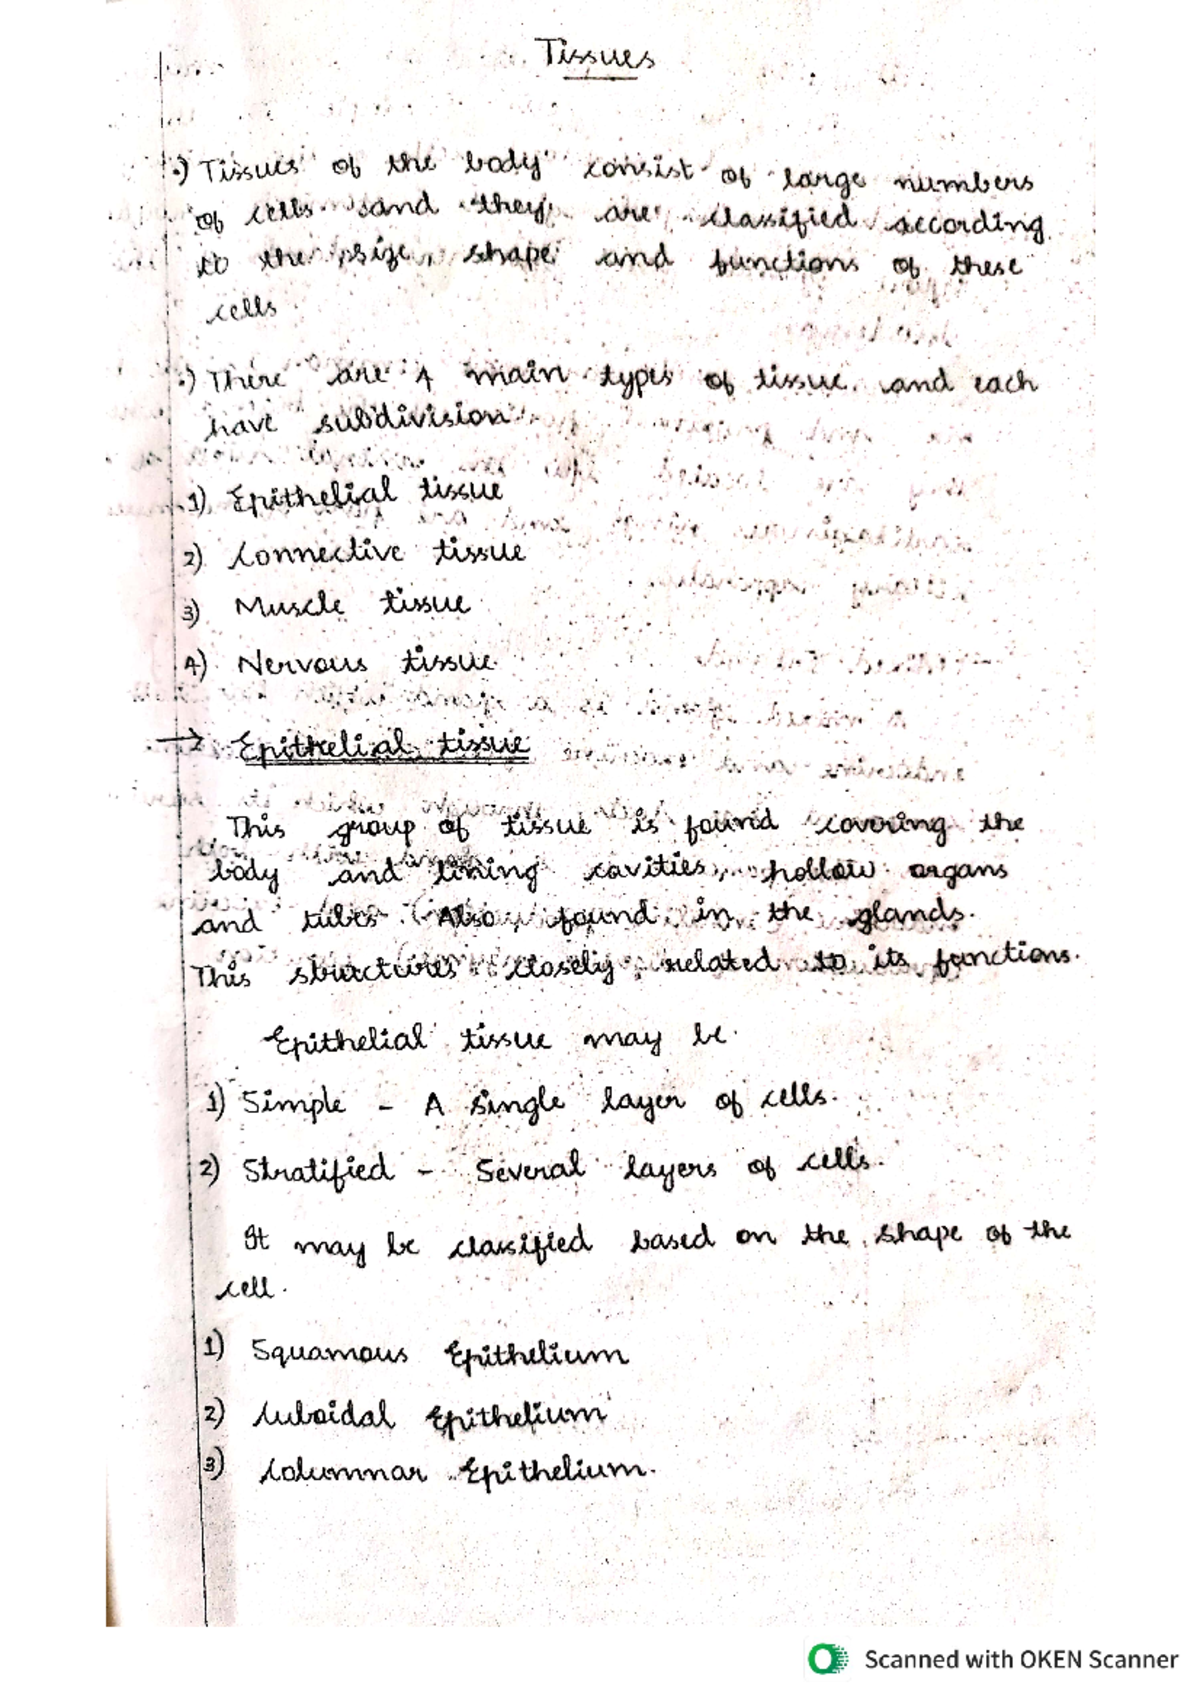 Tissues
·) Tissues of the body consist of large numbers
of cells and they are classified according
to the size, shape and functions of these
cells
·) There are 4 main types of tissue and each
have subdivision
1) Epithelial tissue
2) Connective tissue
3) Muscle tissue
4) Nervous tissue
→ Epithelial tissue
This group of tissue is found covering the
body and lining cavities, hollow organs
and tubes. Also found in the glands.
This structures closely related to its functions.
Epithelial tissue may be
1) Simple - A single layer of cells.
2) Stratified - Several layers of cells.
It may be classified based on the shape of the
cell.
1) Squamous Epithelium
2) Cuboidal Epithelium
3) Columnar Epithelium.
Scanned with OKEN Scanner